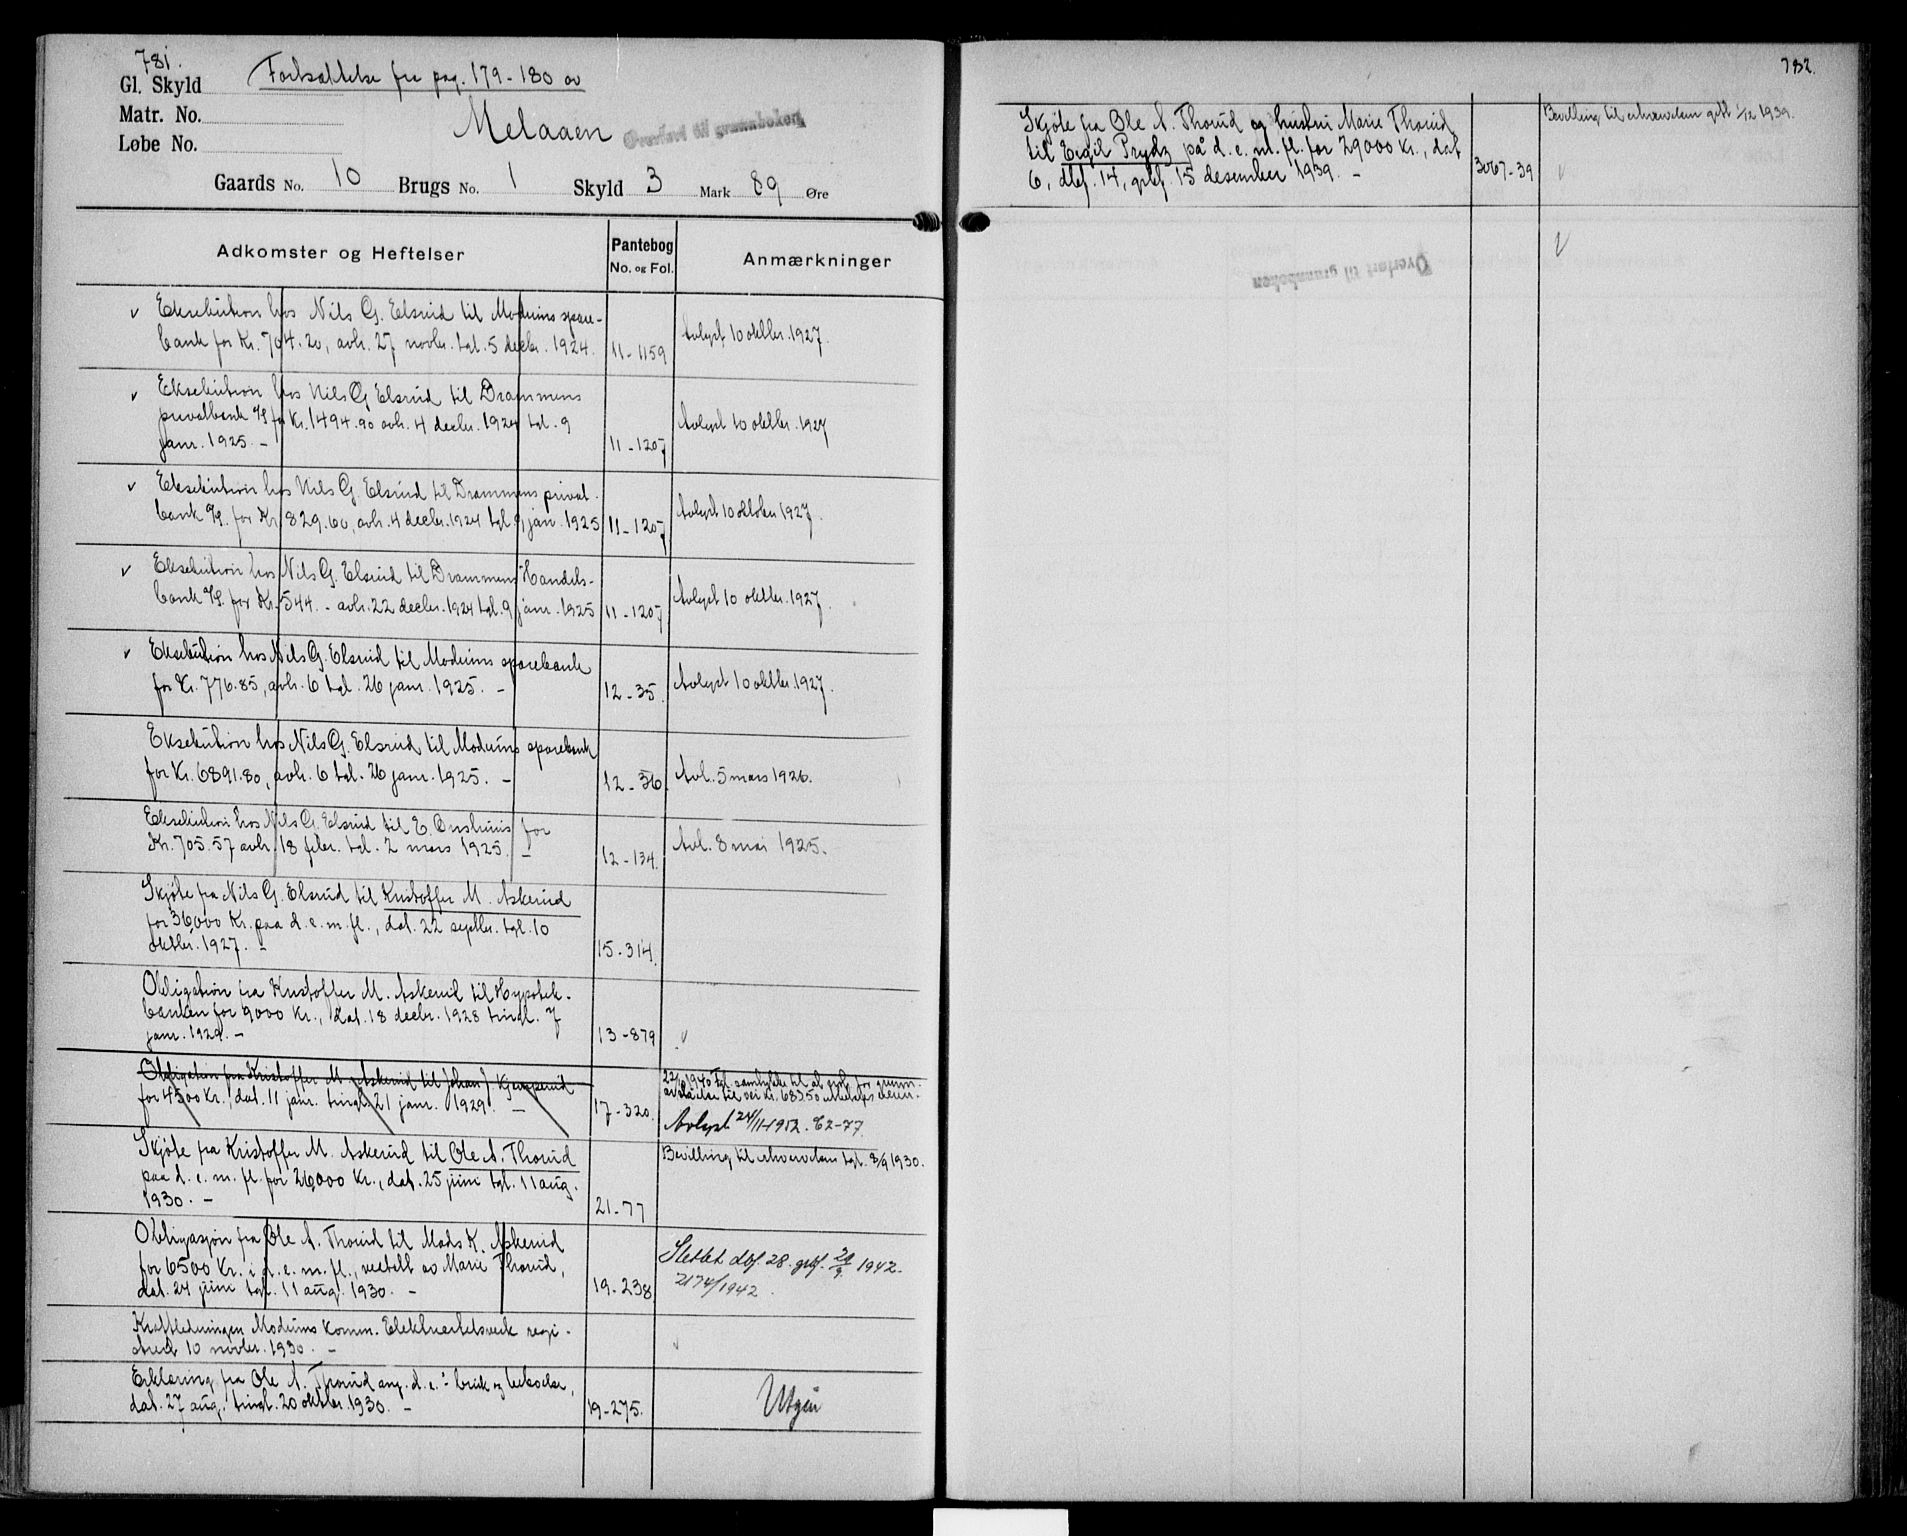 781.
Fortsættelse fra pag. 179-180 av
Gl. Skyld
Matr. No.
Melaaen
Overført til grunnboken
Løbe No.
Gaards No. 10 Brugs No. 1 Skyld 3 Mark 89 Øre
Adkomster og Heftelser
Pantebog
No. og Fol.
Anmærkninger
Eksekution hos Nils G. Elsrud til Modums spare-
bank for Kr. 704.20, avh. 27 novbr. tgl. 5 decbr. 1924.
11-1159
Avlyst 10 oktbr. 1927.
Eksekution hos Nils G. Elsrud til Drammens
privatbank A/S for Kr. 1494.90 avh. 4 decbr. 1924 tgl. 9
janr. 1925. -
11-1207
Avlyst 10 oktbr. 1927
Eksekution hos Nils G. Elsrud til Drammens privat-
bank A/S. for Kr. 829.60, avh. 4 decbr. 1924 tgl. 9 jan. 1925
11-1207
Avlyst 10 oktober 1927.
Eksekution hos Nils G. Elsrud til Drammens Handels-
bank A/S. for Kr. 544.- avh. 22 decbr. 1924 tgl. 9 janr. 1925
11-1207
Avlyst 10 oktbr. 1927.
Eksekution hos Nils G. Elsrud til Modums sparebank
for Kr. 776.85, avh. 6 tgl. 26 janr. 1925. -
12-35.
Avlyst 10 oktbr. 1927.
Eksekution hos Nils G. Elsrud til Modums sparebank
for Kr. 6891.80, avh. 6 tgl. 26 janr. 1925. -
12-36.
Avl. 5 mars 1926.
Eksekution hos Nils G. Elsrud til E. for
Kr. 705.57 avh. 18 febr. tgl. 2 mars 1925. -
12-134.
Avl. 8 mai 1925.
Skjøte fra Nils G. Elsrud til Kristoffer M. Askerud
for 36,000 Kr. paa d. e. m. fl., dat. 22 septbr. tgl. 10
oktbr. 1927. -
15-314.
Obligation fra Kristoffer M. Askerud til Hypotek-
banken for 9000 Kr., dat. 18 decbr. 1928 tingl. 7
janr. 1929. -
13-879
Obligation fra Kristoffer M. Askerud til Johan J. Kjemperud
for 4500 Kr., dat. 11 janr. tingl. 21 janr. 1929. -
17-320.
Avlyst 24/11-1952. 62-77.
Skjøte fra Kristoffer M. Askerud til Ole A. Thorud
paa d. e. m. fl. for 26,000 Kr., dat. 25 juni tgl. 11 aug.
1930. -
21-77
Bevilling til erhvervelsen tgl. 8/9 1930.
Obligasjon fra Ole A. Thorud til Mads K. Askerud
for 6500 Kr. i d. e. m. fl., vedtatt av Marie Thorud,
dat. 24 juni tgl. 11 aug. 1930. -
19-238.
Slettet dbf. 28. gbf. 29/9. 1942.
2174/1942.
Kraftledningen Modums komm. Elektrisitetsverk regi-
strert 10 novbr. 1930. -
Erklæring fra Ole A. Thorud ang. d. e.s bruk og
dat. 27 aug. tingl. 20 oktbr. 1930. -
19-275.
Utgår
782.
Skjøte fra Ole A. Thorud og hustru Marie Thorud
til Eigil Prydz på d. e. m. fl. for 29000 Kr., dat.
6, dbf. 14, gbf. 15 desember 1939. -
3067-39
Bevilling til erhvervelsen gbf. 1/12 1939.
Overført til grunnboken